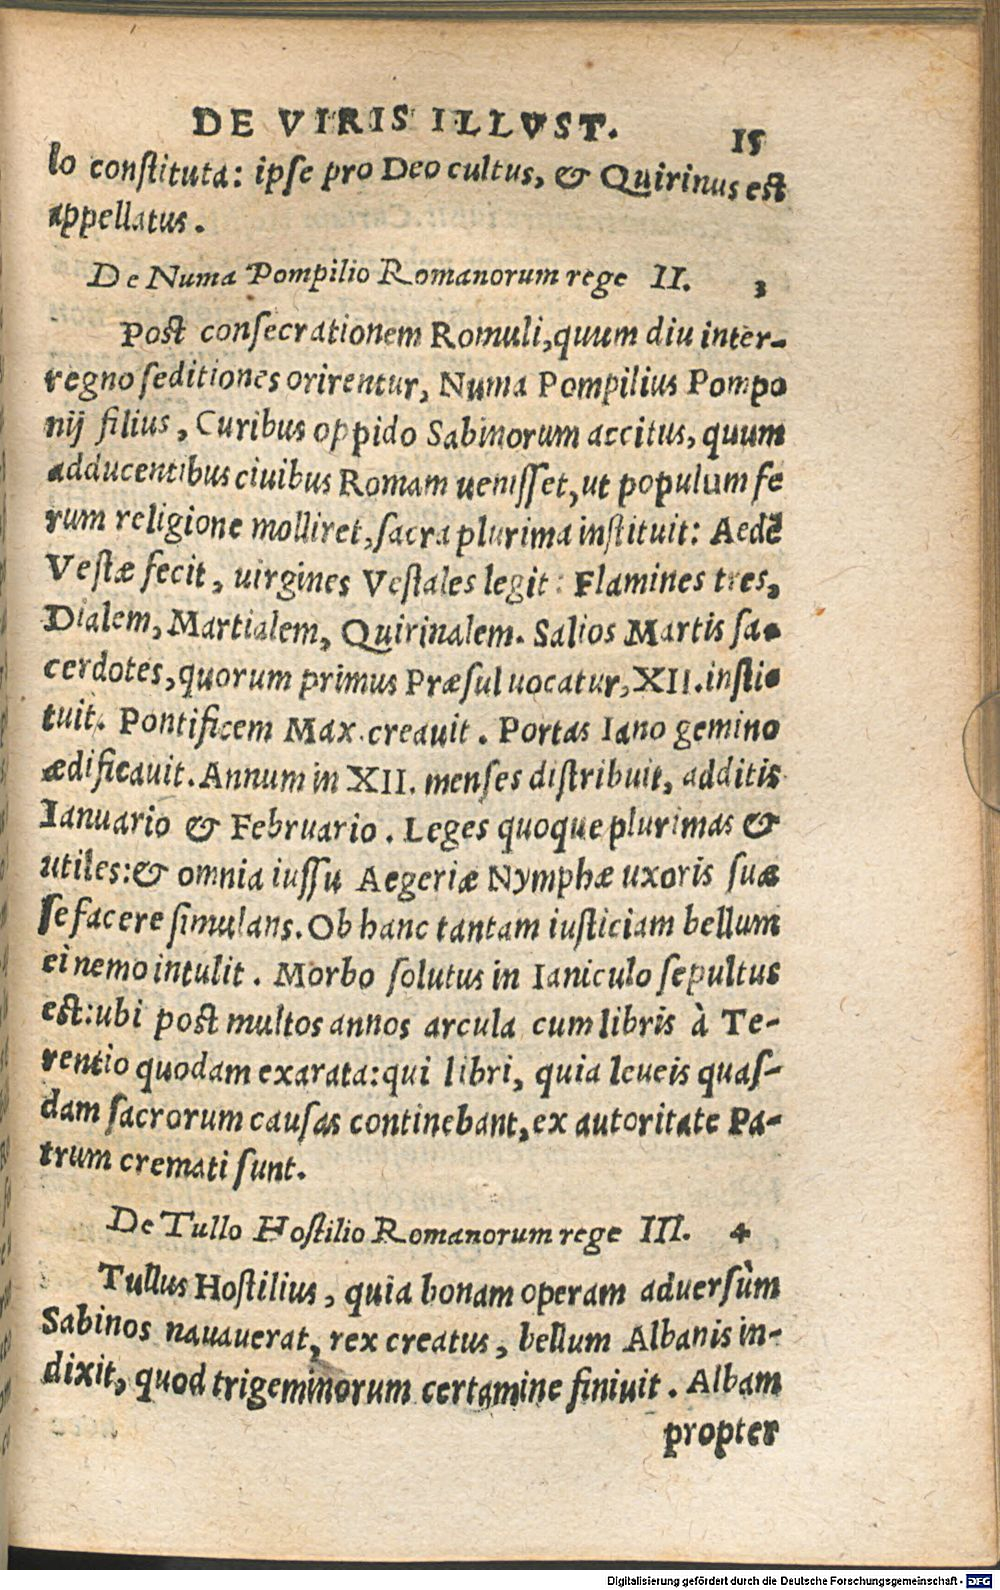 DE VIRIS ILLVST. 15
lo constituta: ipse pro Deo cultus, & Quirinus est
appellatus.
De Numa Pompilio Romanorum rege II. 3
Post consecrationem Romuli, quum diu inter-
regno seditiones orirentur, Numa Pompilius Pompo
nij filius, Curibus oppido Sabinorum accitus, quum
adducentibus ciuibus Romam uenisset, ut populum fe
rum religione molliret, sacra plurima instituit: Aedē
Vestæ fecit, uirgines Vestales legit: Flamines tres,
Dialem, Martialem, Quirinalem. Salios Martis sa-
cerdotes, quorum primus Præsul uocatur, XII. insti-
tuit. Pontificem Max. creauit. Portas Iano gemino
ædificauit. Annum in XII. menses distribuit, additis
Ianuario & Februario. Leges quoque plurimas &
utiles: & omnia iussu Aegeriæ Nymphæ uxoris suæ
se facere simulans. Ob hanc tantam iusticiam bellum
ei nemo intulit. Morbo solutus in Ianiculo sepultus
est: ubi post multos annos arcula cum libris à Te-
rentio quodam exarata: qui libri, quia leueis quas-
dam sacrorum causas continebant, ex autoritate Pa-
trum cremati sunt.
De Tullo Hostilio Romanorum rege III. 4
Tullus Hostilius, quia bonam operam aduersùm
Sabinos nauauerat, rex creatus, bellum Albanis in-
dixit, quod trigeminorum certamine finiuit. Albam
propter
Digitalisierung gefördert durch die Deutsche Forschungsgemeinschaft - DFG